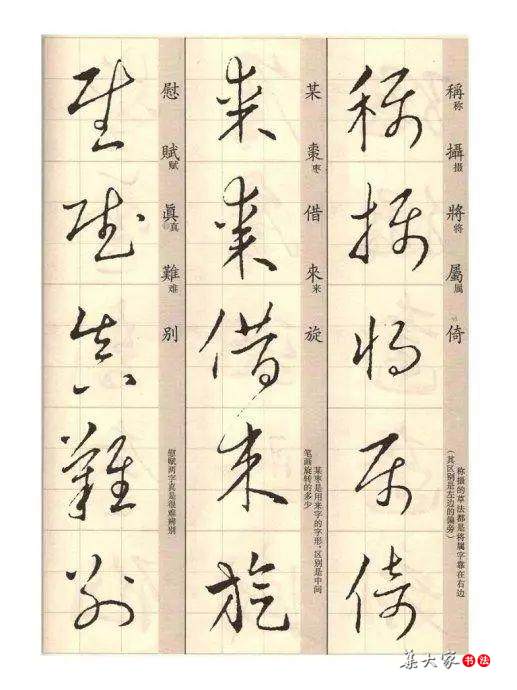 稱称 攝摄 將将 屬属 倚
称攝的草法都是将属字靠在右边
(其区别是左边的偏旁)
稱
攝
將
屬
倚
某 棗枣 借 來来 旋
某枣是用来字的字形，区别是中间
笔画旋转的多少
某
棗
借
來
旋
慰 賦赋 眞真 難难 别
慰赋两字真是很难辨别
慰
賦
眞
難
别
集大家
书法